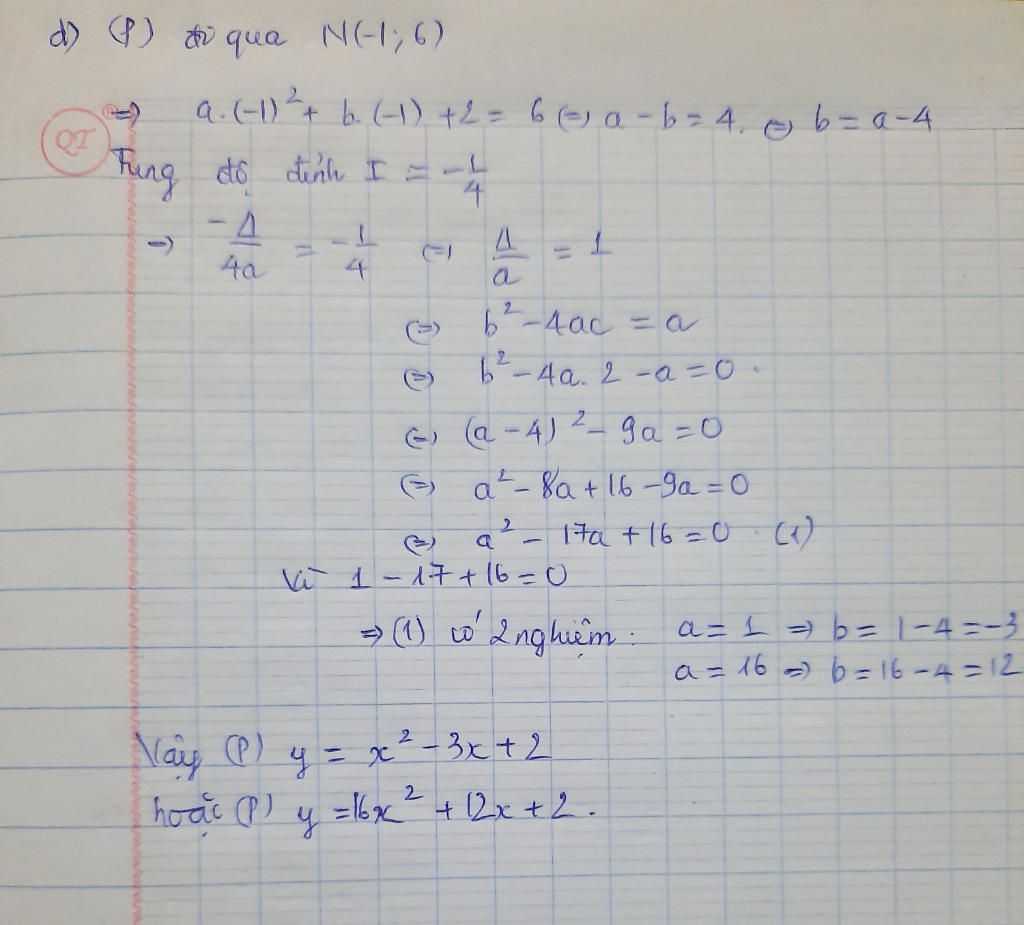 d) (P) đi qua N(-1; 6)
=> a.(-1)² + b.(-1) + 2 = 6 <=> a - b = 4. <=> b = a - 4
QT
Tung độ đỉnh I = -1/4
=> -Δ/4a = -1/4 <=> Δ/a = 1
<=> b² - 4ac = a
<=> b² - 4a.2 - a = 0.
<=> (a - 4)² - 9a = 0
<=> a² - 8a + 16 - 9a = 0
<=> a² - 17a + 16 = 0. (1)
Vì 1 - 17 + 16 = 0
=> (1) có 2 nghiệm: a = 1 => b = 1 - 4 = -3
a = 16 => b = 16 - 4 = 12
Vậy (P) y = x² - 3x + 2
hoặc (P) y = 16x² + 12x + 2.